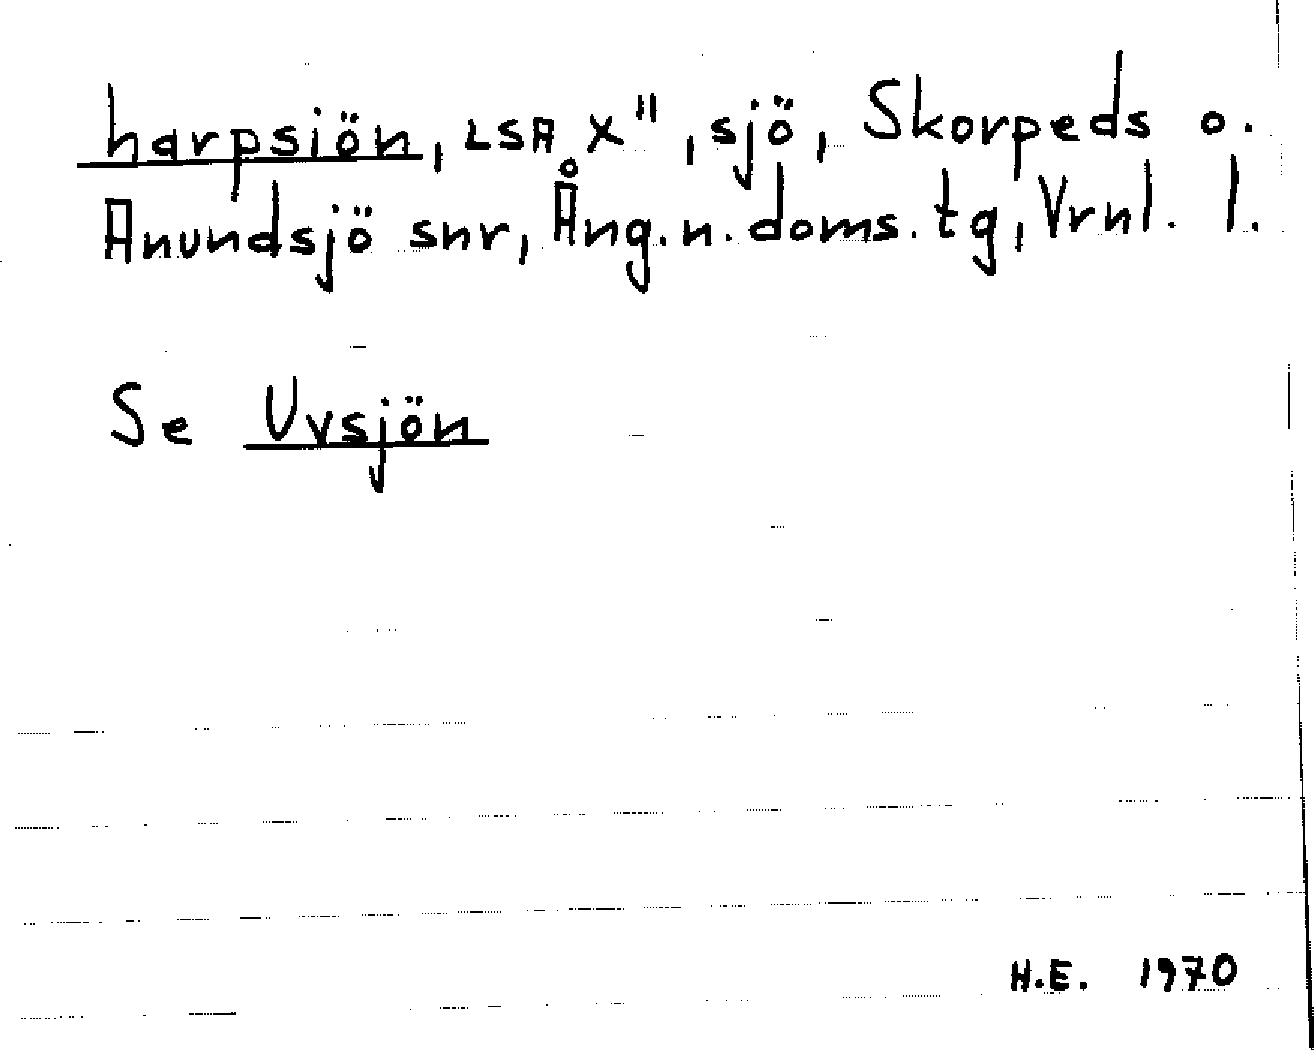 harpsiön, LSA X", sjö, Skorpeds o.
Anundsjö snr, Ång. n. doms. tg, Vrnl. l.
Se Uvsjön
H.E. 1970